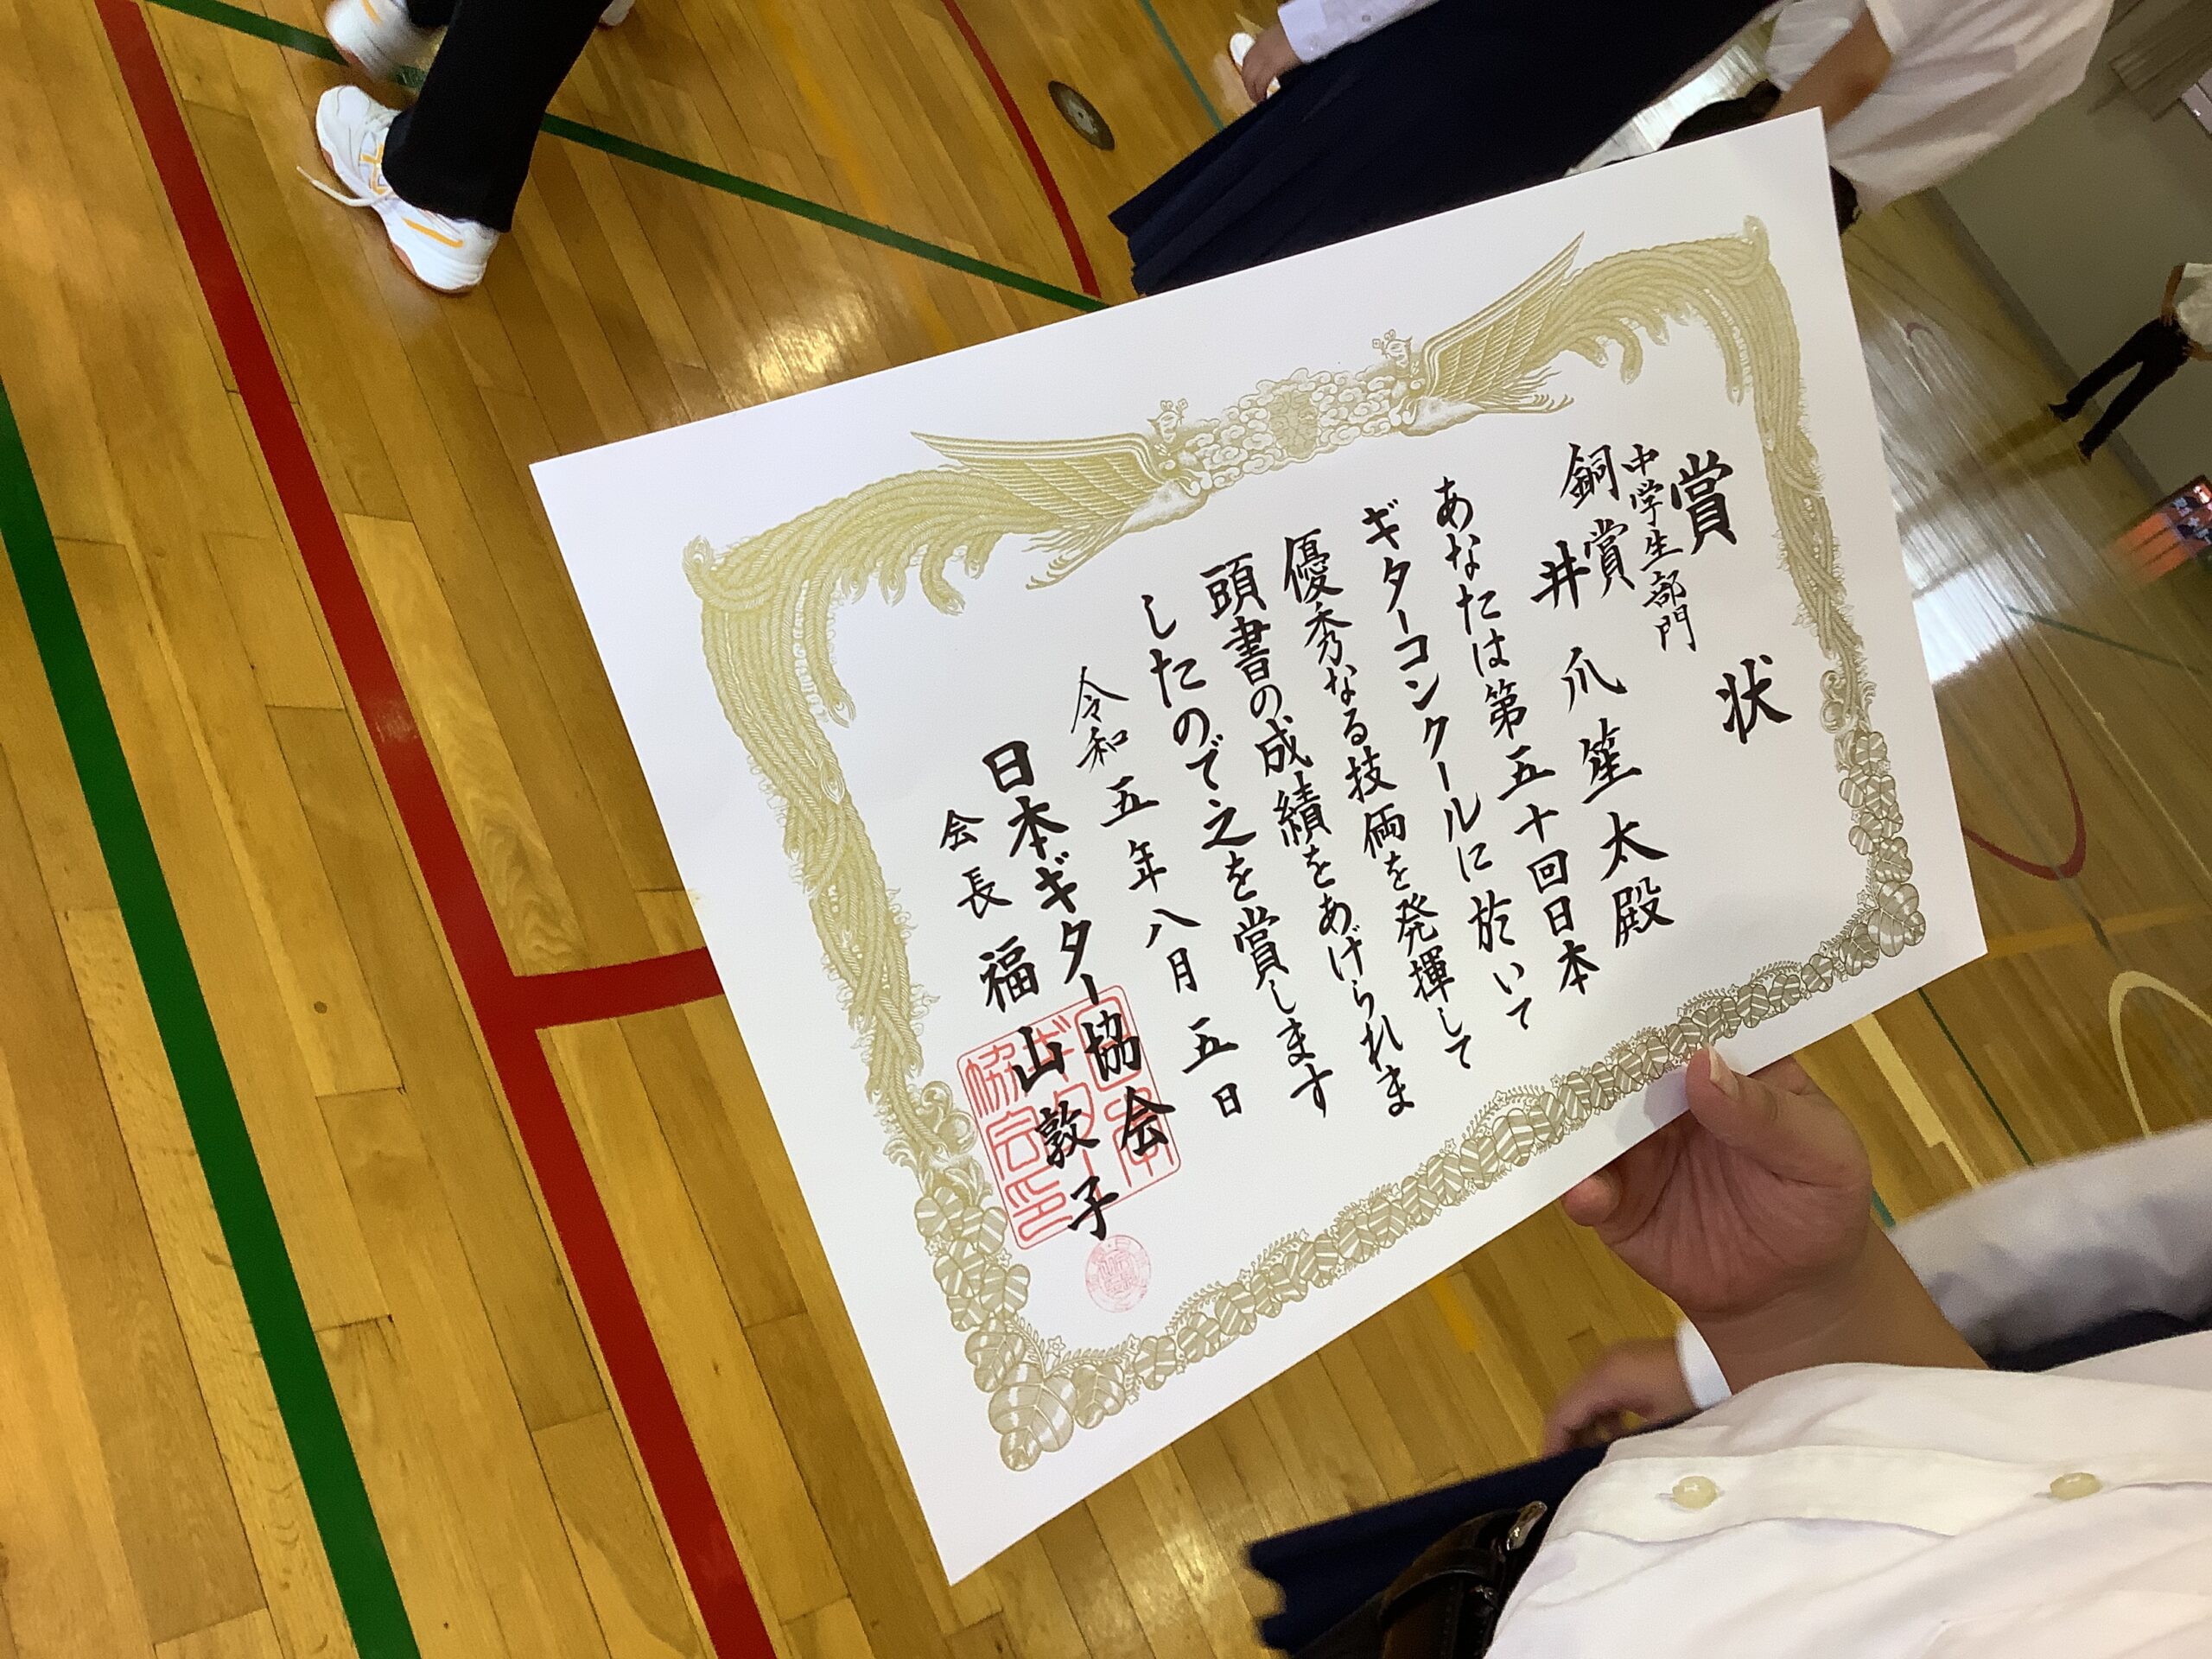 賞状
中学生部門
銅賞
井爪笙太殿
あなたは第五十回日本
ギターコンクールに於いて
優秀なる技倆を発揮して
頭書の成績をあげられま
したので之を賞します
令和五年八月五日
日本ギター協会
会長 福山敦子
日本
ギター
協会印